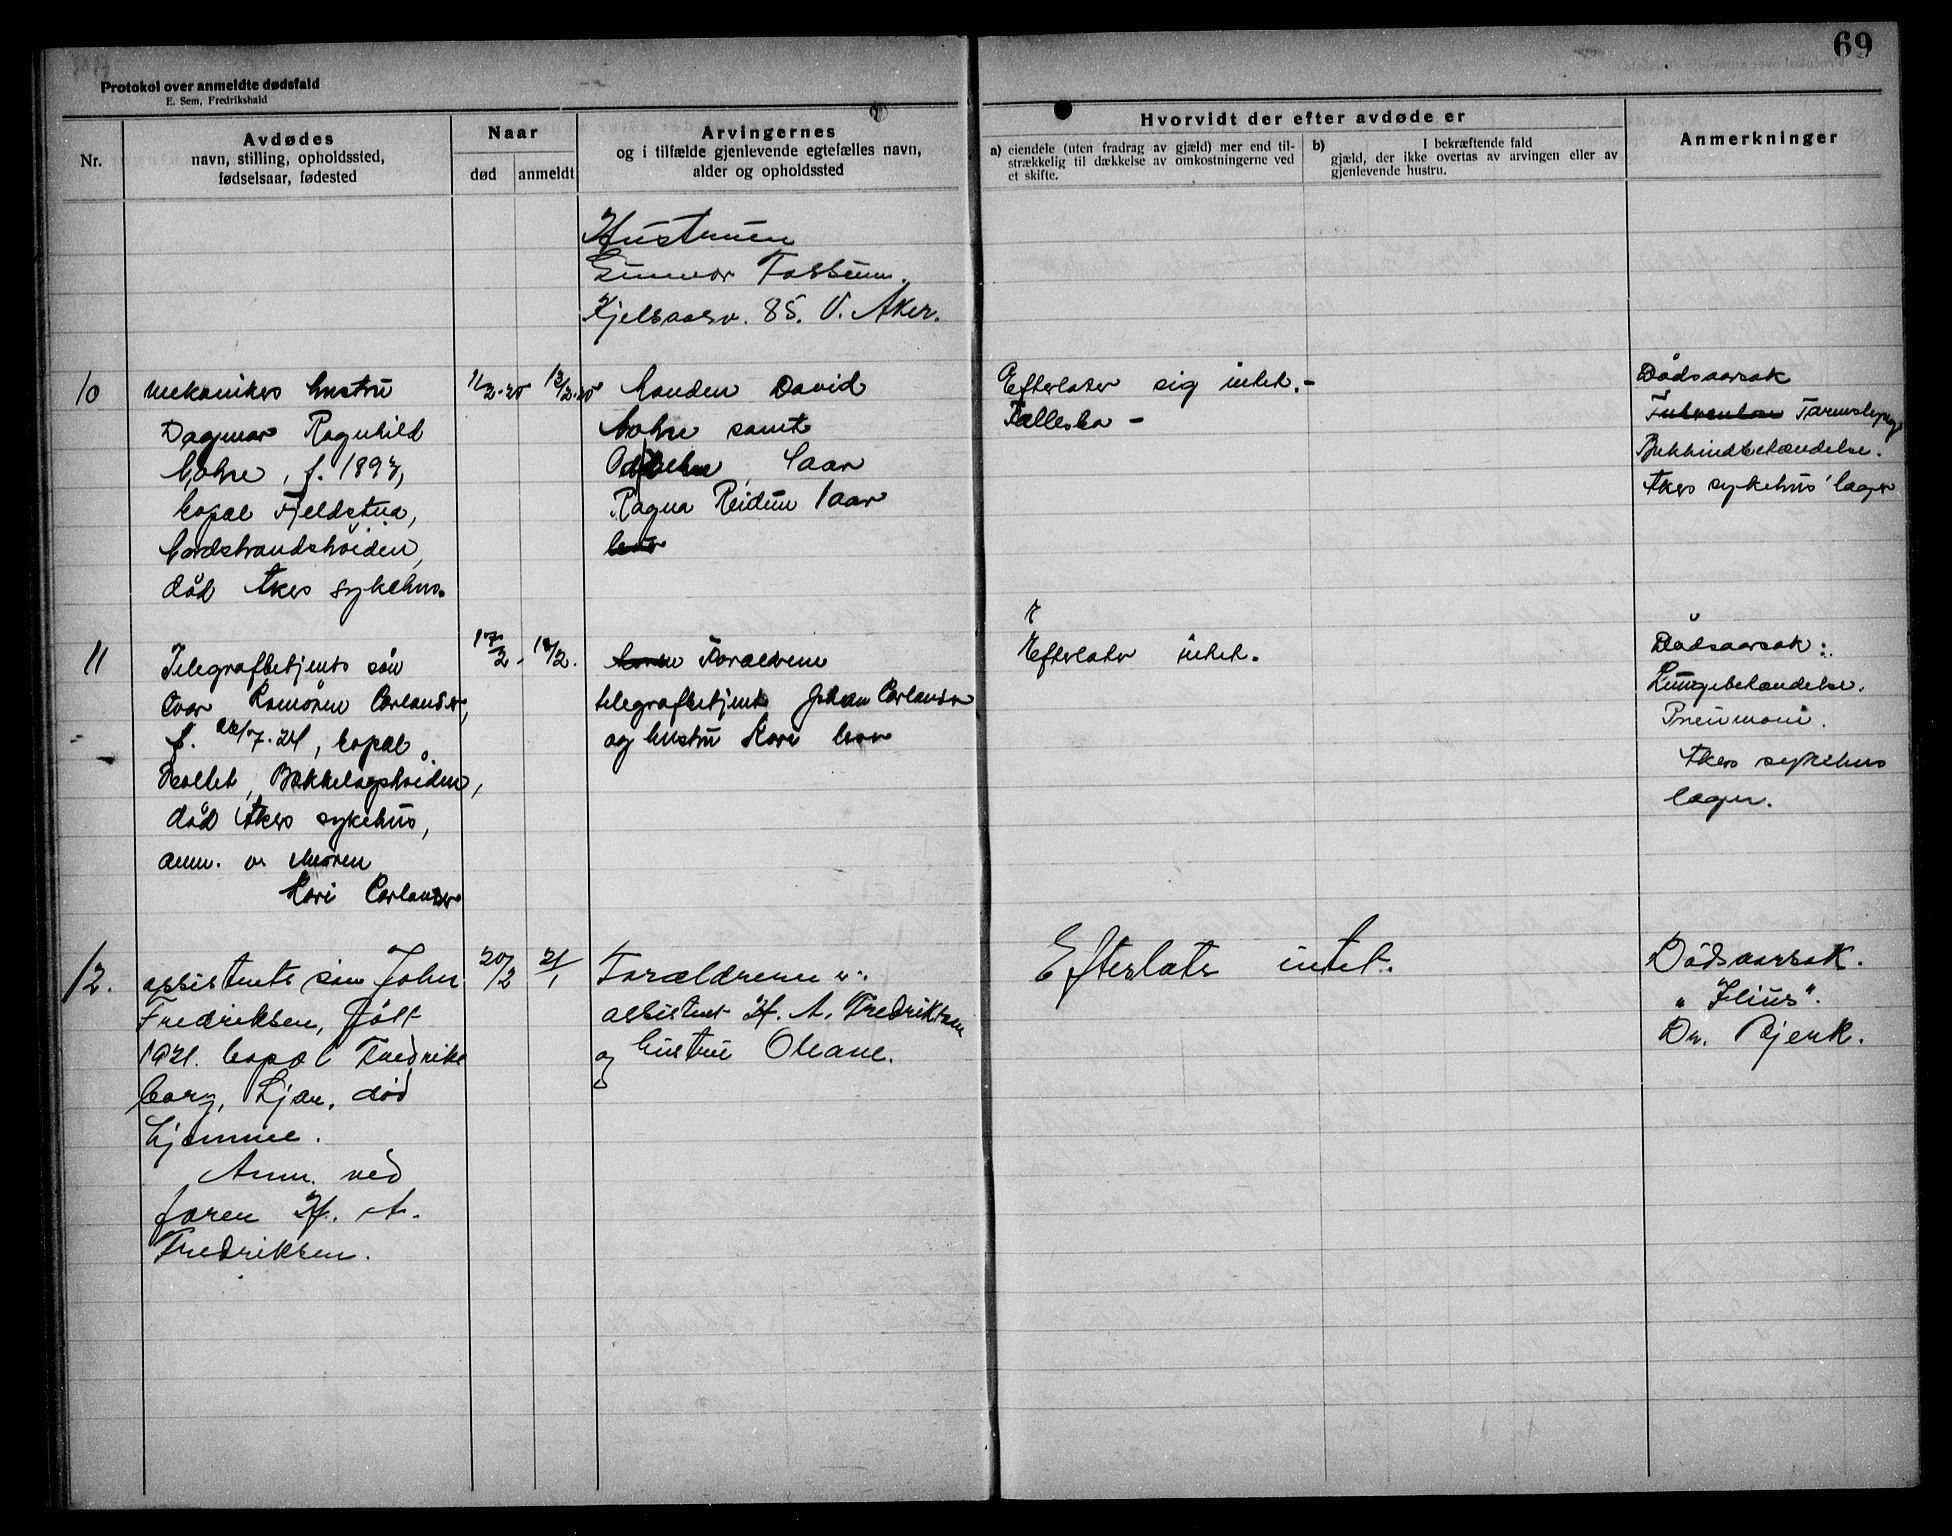 69
Protokol over anmeldte dødsfald
E. Sem, Fredrikshald
Nr.
Avdødes
navn, stilling, opholdssted,
fødselsaar, fødested
Naar
død
anmeldt
Arvingernes
og i tilfælde gjenlevende egtefælles navn,
alder og opholdssted
Hvorvidt der efter avdøde er
a) eiendele (uten fradrag av gjæld) mer end til-
strækkelig til dækkelse av omkostningerne ved
et skifte.
b) I bekræftende fald
gjæld, der ikke overtas av arvingen eller av
gjenlevende hustru.
Anmerkninger
Hustruen
Gunvor Fossum.
Kjelsaasv. 85. V. Aker.
10
mekanikers hustru
Dagmar Ragnhild
f. 1897,
bopæl Fjeldstua,
Nordstrandshöiden,
död Akers sykehus.
11/2-25
13/2-25
Manden David
samt
5 aar
Ragna Reidun 1 aar
Efterlater sig intet.-
Fællesbo -
Dödsaarsak
Bukhindebetændelse.
Akers sykehus læger
11
Telegrafbetjents sön
Ivar
f. 26/7.24, bopæl
Bekkelagshöiden,
död Akers sykehus,
anm. v. moren
Kari
17/2-
18/2.
Forældrene
telegrafbetjent Johan
og hustru Kari
Efterlater intet.
Dödsaarsak:
Lungebetændelse.
Pneumoni.
Akers sykehus
læger.
12.
assistents sön John
Fredriksen, født
1921. bopæl Fredriks
borg, Ljan, död
hjemme.
Anm. ved
faren H. A.
Fredriksen.
20/2
21/1
Forældrene v.
assistent H. A. Fredriksen
og hustru
Efterlater intet.
Dödsaarsak.
"Ilius".
Dr. Bjerk.